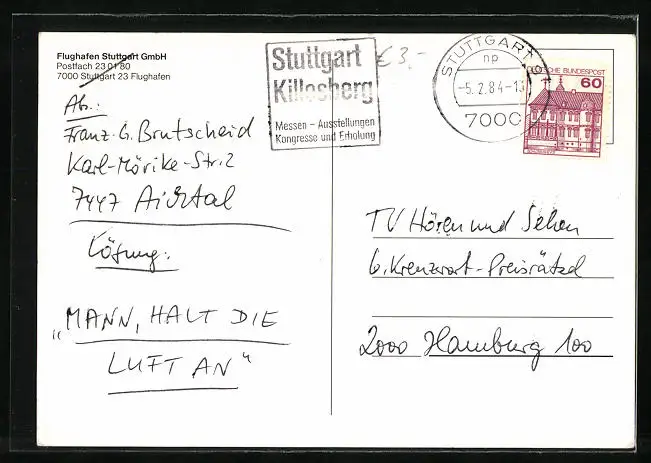 Flughafen Stuttgart GmbH
Postfach 23 01 80
7000 Stuttgart 23 Flughafen
Ab.:
Franz. G. Brutscheid
Karl-Mörike-Str. 2
7447 Aichtal
Lösung:
„MANN, HALT DIE
LUFT AN"
Stuttgart
Killesberg
Messen – Ausstellungen
Kongresse und Erholung
€ 3,-
STUTTGART
np
-5.2.84-1
7000
DEUTSCHE BUNDESPOST
60
TV Hören und Sehen
G. Kreuzwort-Preisrätsel
2000 Hamburg 100